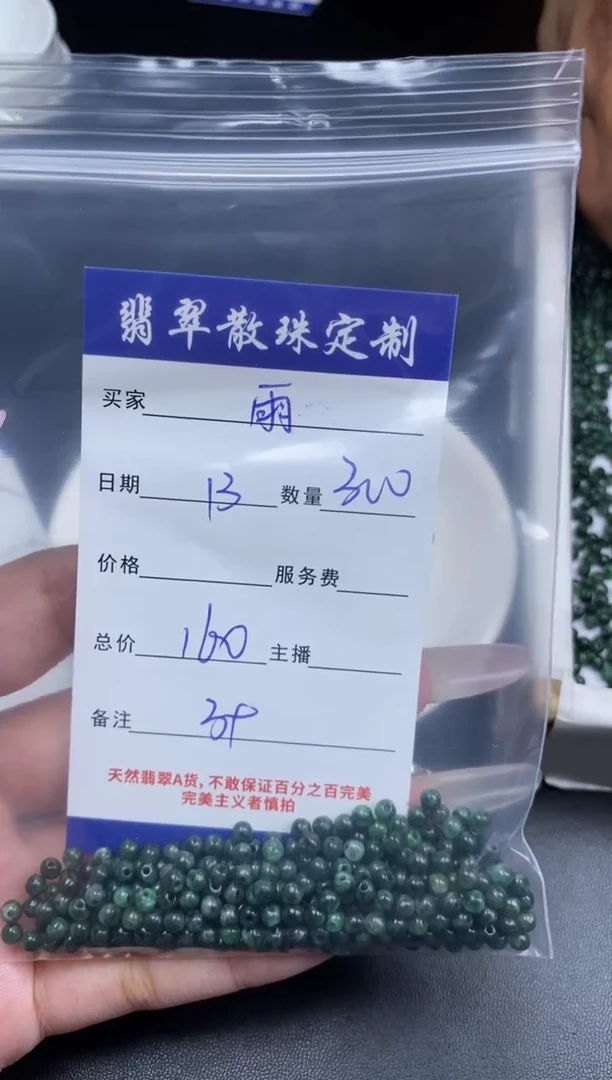 翡翠散珠定制
买家 雨
日期 13 数量 300
价格 服务费
总价 160 主播
备注
天然翡翠A货，不敢保证百分之百完美
完美主义者慎拍